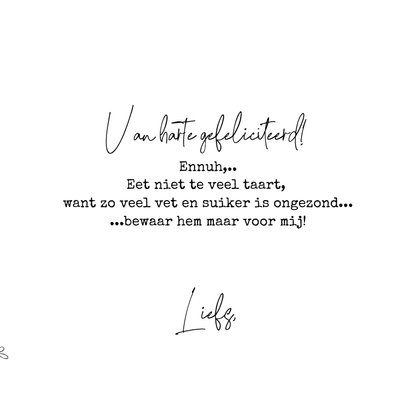 Van harte gefeliciteerd!
Ennuh,..
Eet niet te veel taart,
want zo veel vet en suiker is ongezond...
...bewaar hem maar voor mij!
Liefs,